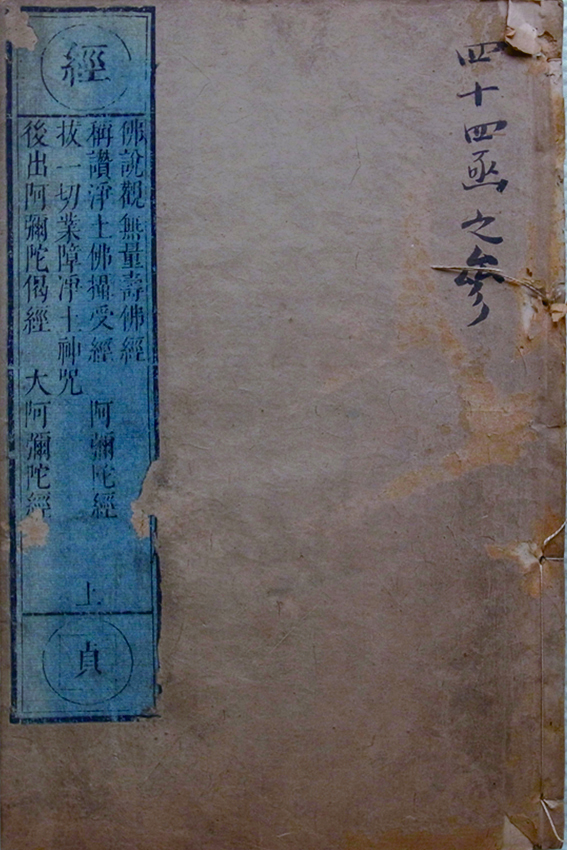 四十四凾之参
經
佛說觀無量壽佛經
稱讚淨土佛攝受經　阿彌陀經
拔一切業障淨土神咒
後出阿彌陀偈經　大阿彌陀經
上
貞